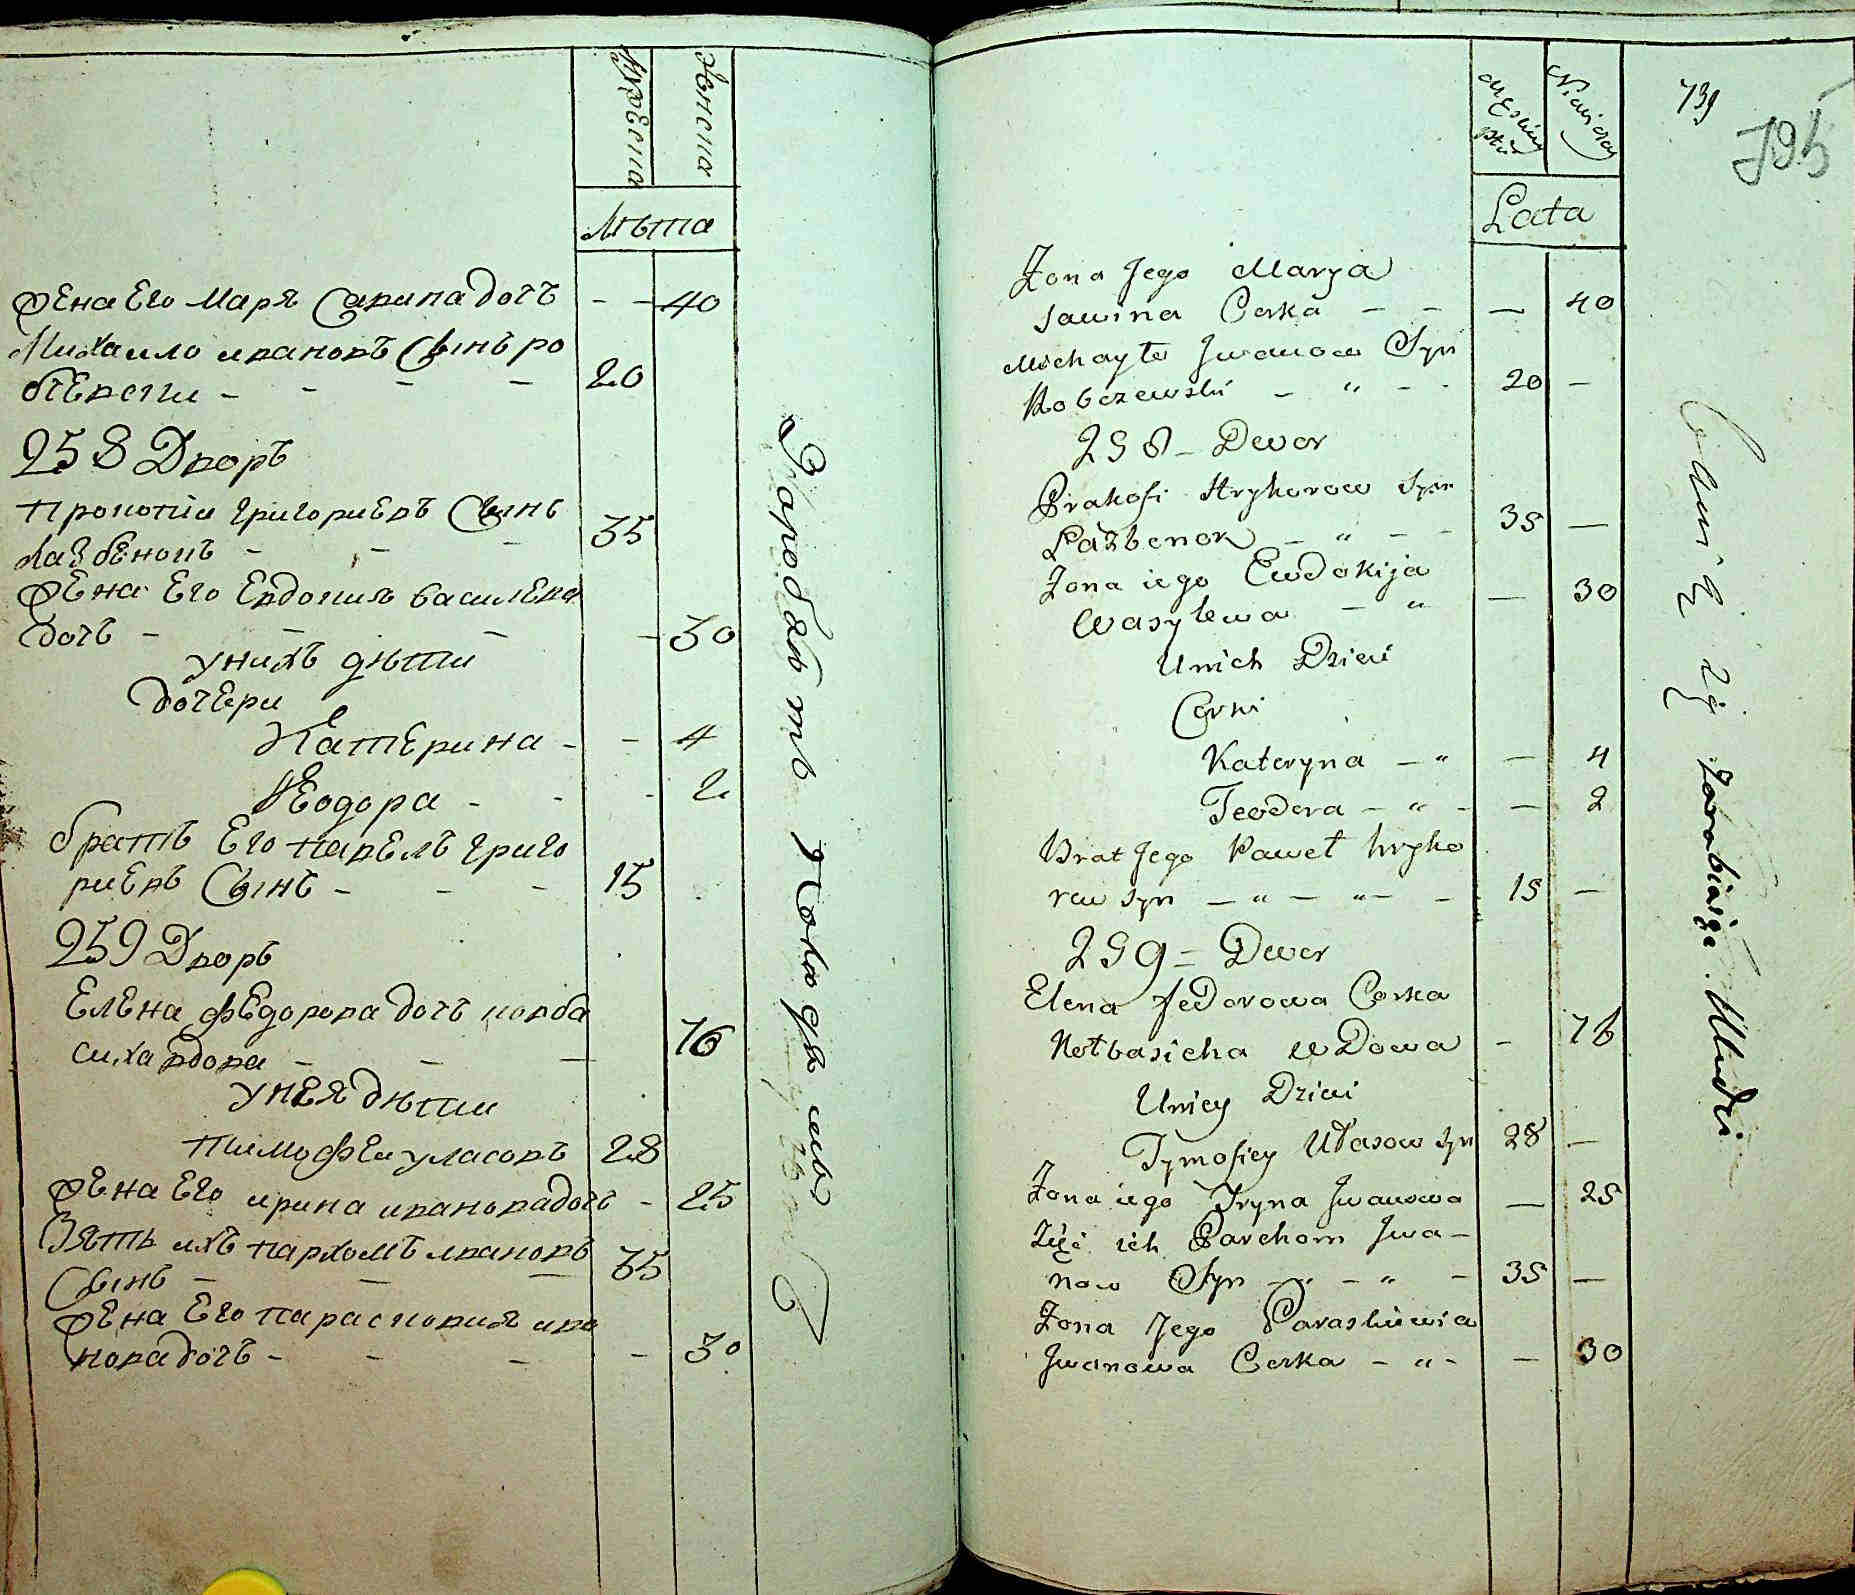 Мужеска
Женска
Лѣта
жена Его Маря Савина дочъ - - 40
Михаило ивановъ Сынъ ро
бчевски - - - - 20
258 Дворъ
Прокопіи григориевъ Сынъ
Лазбенокъ - - - 35
жена Его Евдокия василева
дочъ - - - - 30
у нихъ дѣти
дочери
Катерина - - 4
Феодора - - - 2
братъ Его павелъ григо
риевъ Сынъ - - - 15
259 Дворъ
Елена федорова дочъ колба
сиха вдова - - - 76
у нея дѣти
тимофеи уласовъ 28
жена Его ирина иванова дочъ - 25
Зять ихъ пархомъ ивановъ
Сынъ - - - 35
жена Его парасковия ива
нова дочъ - - - - 30
739
795
Męskie
Niewiescie
Lata
Żona Jego Marya
Sawina Corka - - — 40
Michayło Jwanow Syn
Robczewski - " - - 20 —
258 - Dwor
Prakofi Hryhorow Syn
Łazbenok - " - - 35 —
Żona iego Ewdokija
Wasylewa - " — 30
U nich Dzieci
Corki
Kateryna - " — 4
Teodora - " - — 2
Brat Jego Paweł hryho
row syn - " - " - - 15 —
259 = Dwor
Elena fedorowa Corka
Kołbasicha wdowa - 76
U niey Dzieci
Tymofiey Ułasow syn 28 —
Żona iego Jryna Jwanowa — 25
Zięć ich Parchom Jwa-
now Syn - " - " - 35 —
Żona Jego Paraskiewia
Jwanowa Corka - " - — 30
zarabiaiące